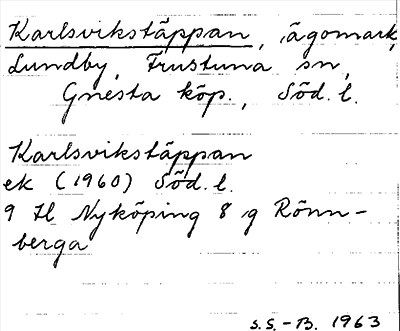 Karlsvikstäppan, ägomark,
Lundby, Frustuna sn,
Gnesta köp., Söd. l.
Karlsvikstäppan
ek (1960) Söd. l.
9 H Nyköping 8 g Rönn-
berga
S.S.-B. 1963